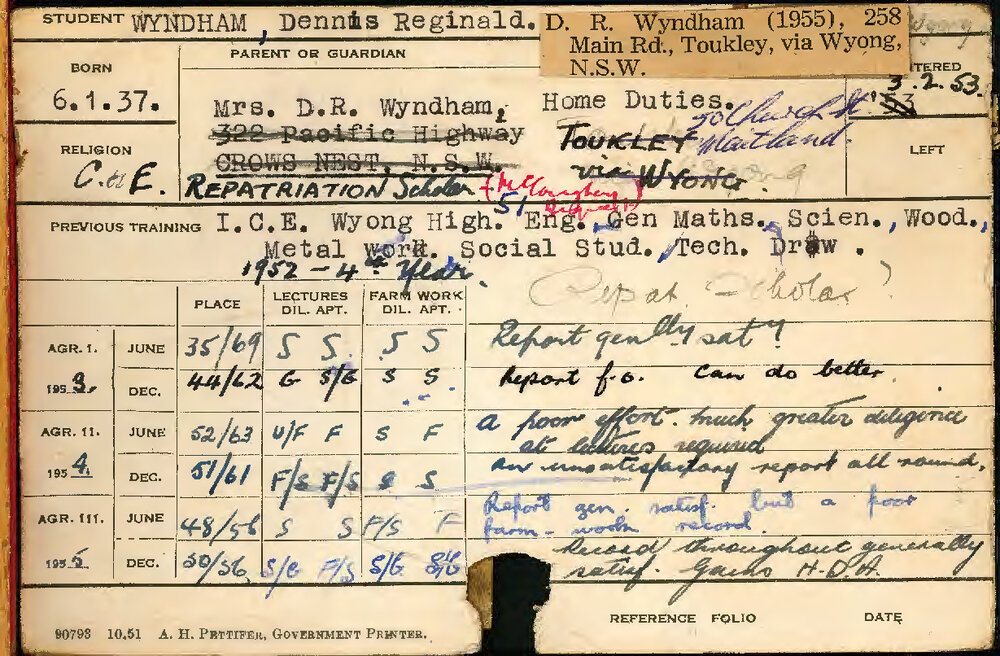 STUDENT WYNDHAM, Dennis Reginald.
D. R. Wyndham (1955), 258
Main Rd., Toukley, via Wyong,
N.S.W.
Wyong
BORN
6.1.37.
PARENT OR GUARDIAN
Mrs. D.R. Wyndham,
322 Pacific Highway
CROWS NEST, N.S.W.
Home Duties.
TOUKLEY
via WYONG.
Church St.
Maitland.
3.2.53.
'53
LEFT
RELIGION
C. of E.
REPATRIATION Scholar
51
PREVIOUS TRAINING I.C.E. Wyong High. Eng., Gen Maths., Scien., Wood.,
Metal work. Social Stud., Tech. Draw.
1952 - 4th Year.
Repat. Scholar?
PLACE
LECTURES
DIL. APT.
FARM WORK
DIL. APT.
AGR. I. JUNE 35/69 S S S S Report gen'lly sat'y
1953. DEC. 44/62 G S/G S S Report f.o. Can do better
AGR. II. JUNE 52/63 U/F F S F A poor effort. Much greater diligence
at lectures required
1954 DEC. 51/61 F/S F/S S S An unsatisfactory report all round.
AGR. III. JUNE 48/56 S S F/S F Report gen. satisf. but a poor
farm-work record.
1955. DEC. 50/56 S/G F/S S/G S/G Record throughout generally
satisf. Gains H.D.A.
REFERENCE FOLIO DATE
90793 10.51 A. H. PETTIFER, GOVERNMENT PRINTER.